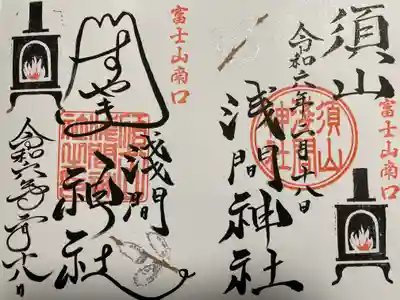 富士山南口
須山
浅間神社
令和六年二月十八日
須山浅間神社
富士山南口
富士山南口
すやま
浅間
神社
令和六年二月十八日